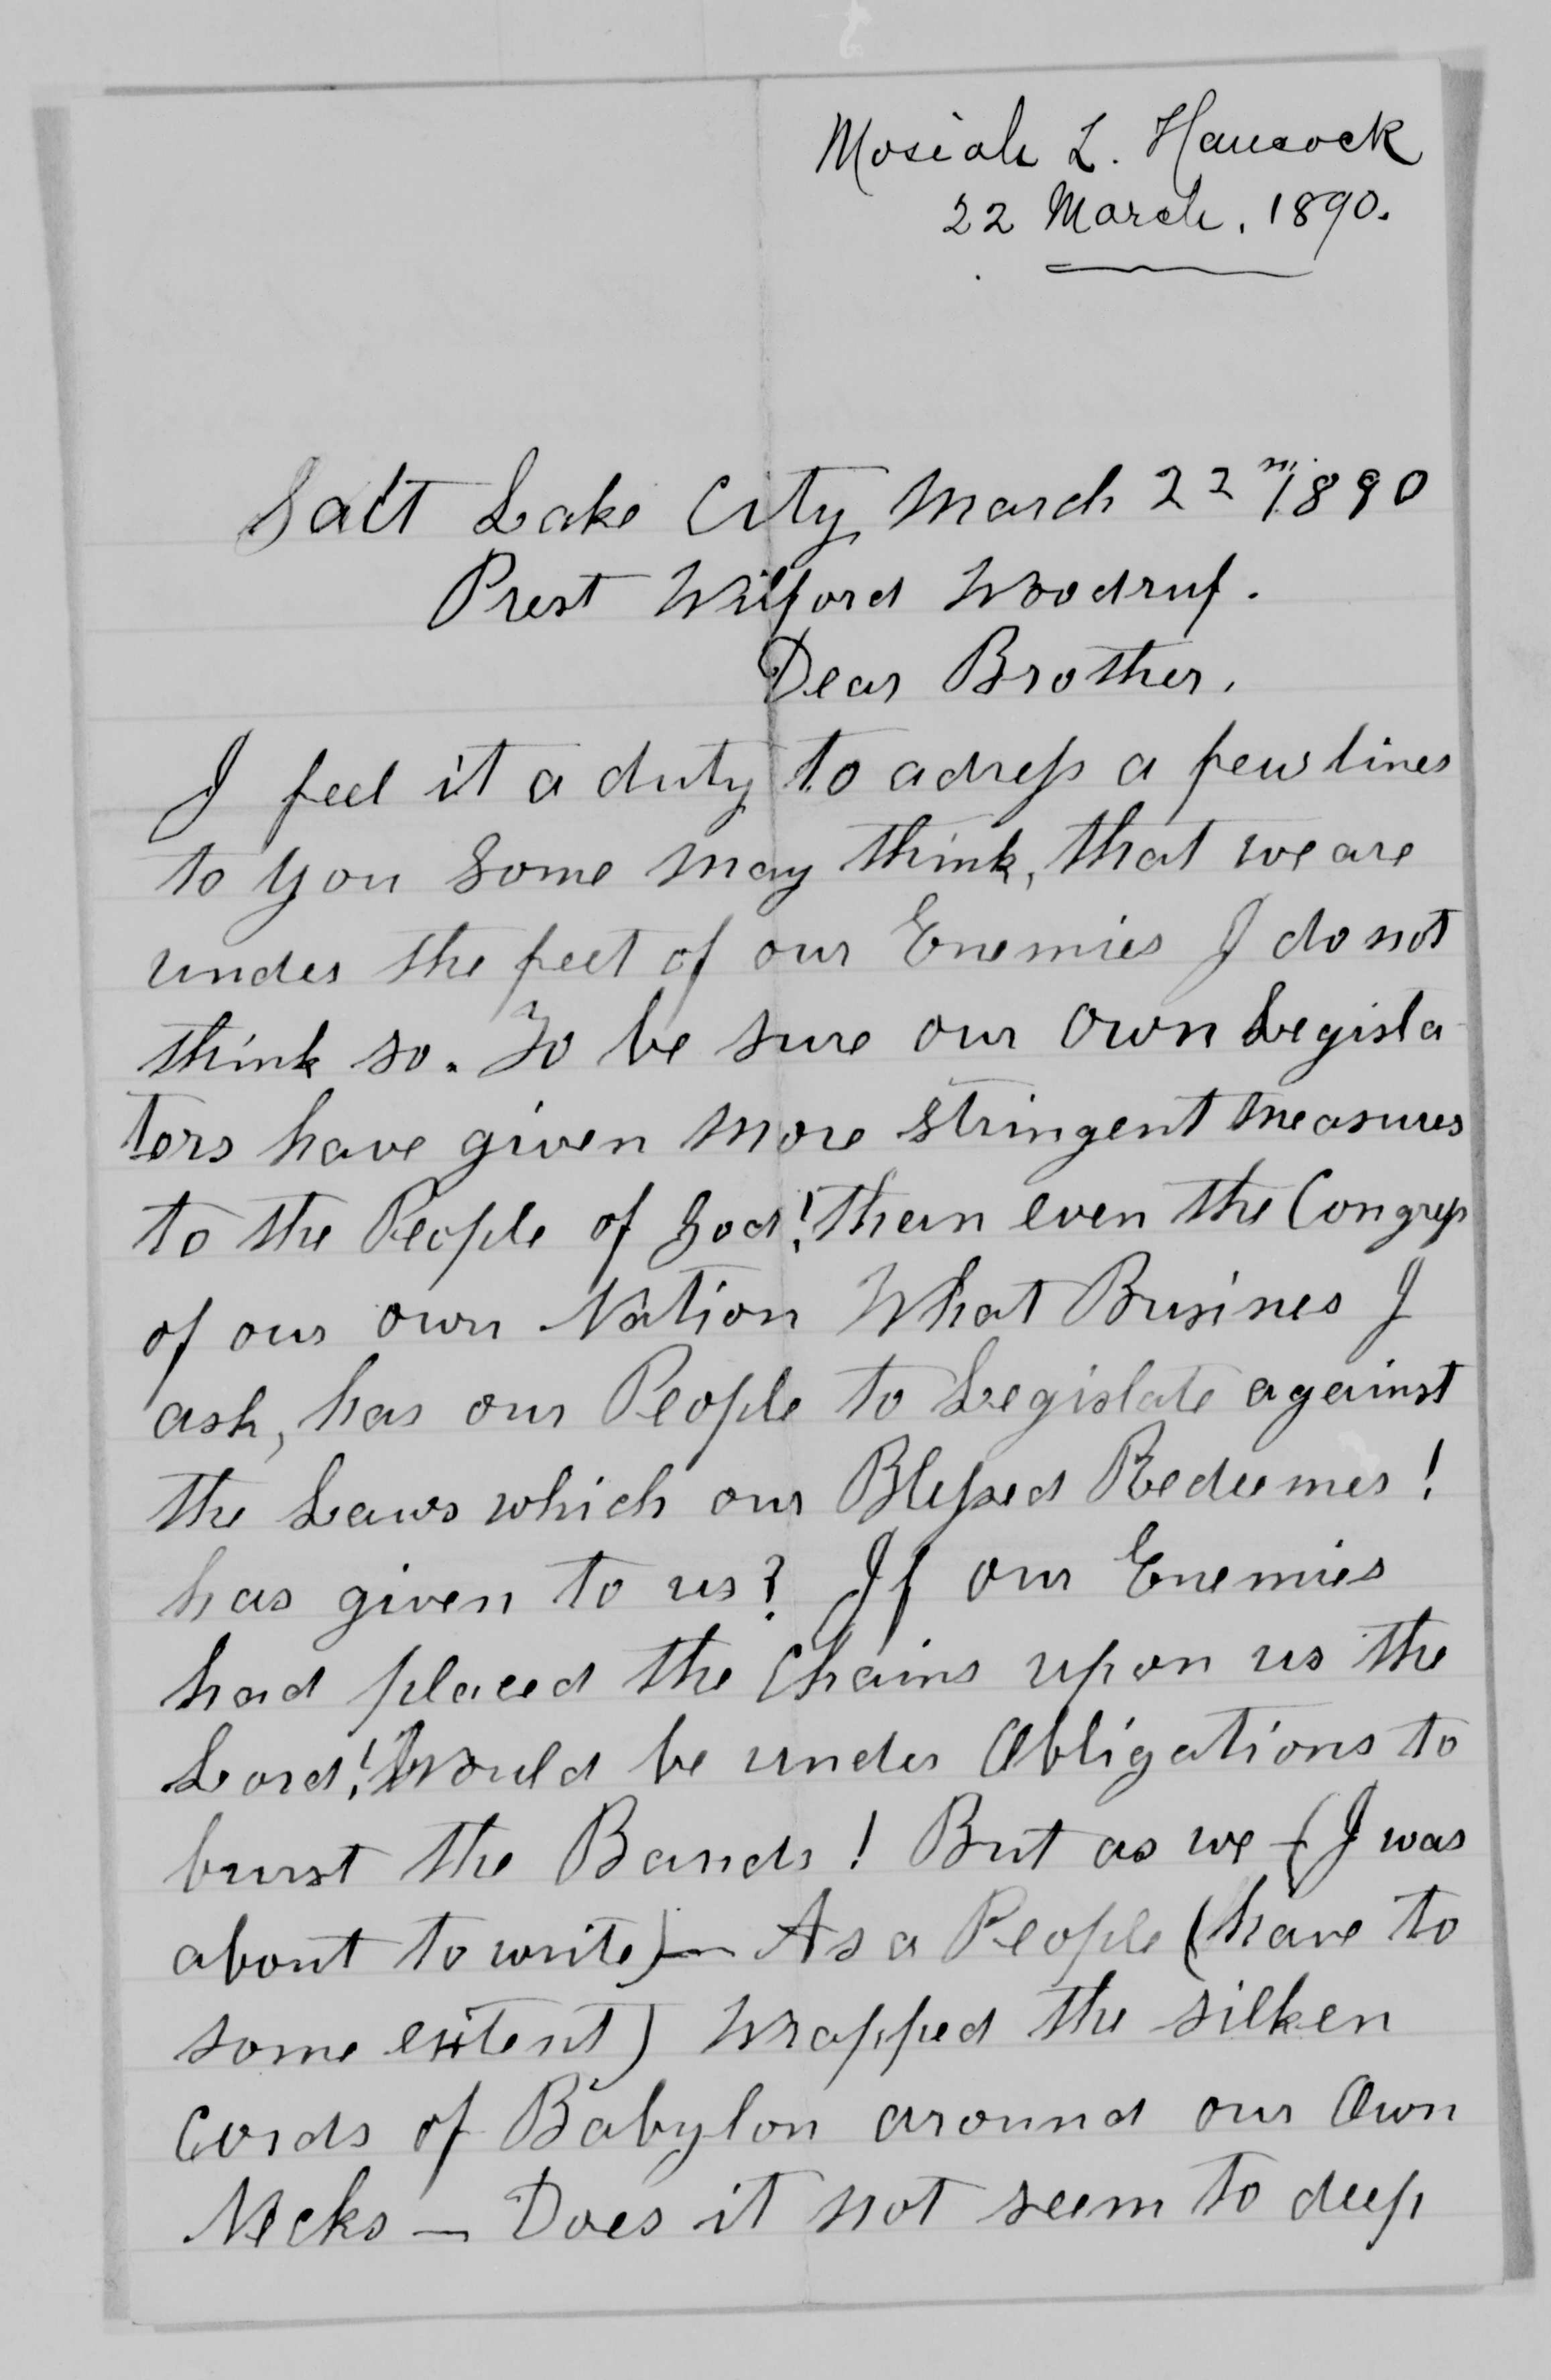 Mosiah L. Hancock
22 March, 1890.
Salt Lake City March 22nd 1890
Prest Wilford Woodruf.
Dear Brother,
I feel it a duty to adress a few lines
to you Some may think, that we are
under the feet of our Enemies I do not
think so. To be sure our own Legisla
tors have given more stringent measures
to the People of God! than even the Congress
of our own Nation What Busines I
ask, has our People to Legislate against
the Laws which our Blessed Redeemer!
has given to us? If our Enemies
had placed the Chains upon us the
Lord! Would be under Obligations to
burst the Bands! But as we – (I was
about to write) — As a People (have to
some extent) Wrapped the silken
Cords of Babylon around our Own
Necks — Does it not seem to deep